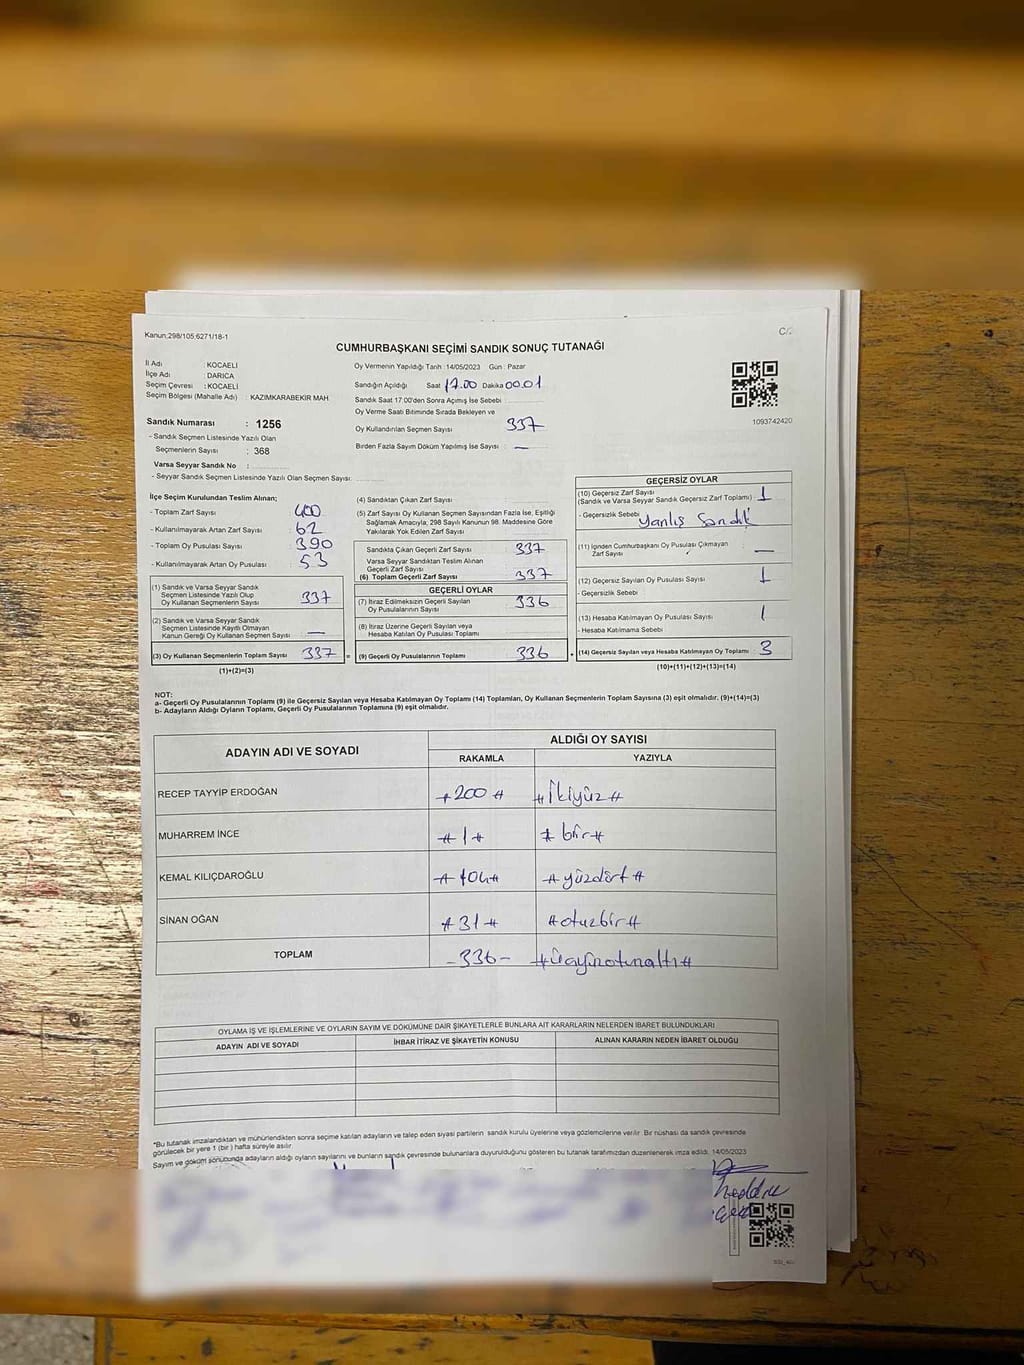 Kanun;298/105,6271/18-1
C/2
CUMHURBAŞKANI SEÇİMİ SANDIK SONUÇ TUTANAĞI
İl Adı : KOCAELİ
İlçe Adı : DARICA
Seçim Çevresi : KOCAELİ
Seçim Bölgesi (Mahalle Adı) : KAZIMKARABEKIR MAH
Sandık Numarası : 1256
- Sandık Seçmen Listesinde Yazılı Olan
Seçmenlerin Sayısı : 368
Varsa Seyyar Sandık No :
- Seyyar Sandık Seçmen Listesinde Yazılı Olan Seçmen Sayısı:
Oy Vermenin Yapıldığı Tarih :14/05/2023 Gün : Pazar
Sandığın Açıldığı Saat 17.00 Dakika 00.01
Sandık Saat 17:00'den Sonra Açımış İse Sebebi :
Oy Verme Saati Bitiminde Sırada Bekleyen ve
Oy Kullandırılan Seçmen Sayısı : 337
Birden Fazla Sayım Döküm Yapılmış İse Sayısı : —
1093742420
İlçe Seçim Kurulundan Teslim Alınan;
- Toplam Zarf Sayısı : 400
- Kullanılmayarak Artan Zarf Sayısı : 62
- Toplam Oy Pusulası Sayısı : 390
- Kullanılmayarak Artan Oy Pusulası : 53
(1) Sandık ve Varsa Seyyar Sandık
Seçmen Listesinde Yazılı Olup
Oy Kullanan Seçmenlerin Sayısı 337
(2) Sandık ve Varsa Seyyar Sandık
Seçmen Listesinde Kayıtlı Olmayan
Kanun Gereği Oy Kullanan Seçmen Sayısı —
(3) Oy Kullanan Seçmenlerin Toplam Sayısı 337 =
(1)+(2)=(3)
(4) Sandıktan Çıkan Zarf Sayısı :
(5) Zarf Sayısı Oy Kullanan Seçmen Sayısından Fazla İse, Eşitliği
Sağlamak Amacıyla, 298 Sayılı Kanunun 98. Maddesine Göre
Yakılarak Yok Edilen Zarf Sayısı
Sandıkta Çıkan Geçerli Zarf Sayısı 337
Varsa Seyyar Sandıktan Teslim Alınan
Geçerli Zarf Sayısı
(6) Toplam Geçerli Zarf Sayısı 337
GEÇERLİ OYLAR
(7) İtiraz Edilmeksizin Geçerli Sayılan
Oy Pusulalarının Sayısı 336
(8) İtiraz Üzerine Geçerli Sayılan veya
Hesaba Katılan Oy Pusulası Toplamı
(9) Geçerli Oy Pusulalarının Toplamı 336 +
GEÇERSİZ OYLAR
(10) Geçersiz Zarf Sayısı
(Sandık ve Varsa Seyyar Sandık Geçersiz Zarf Toplamı) : 1
- Geçersizlik Sebebi yanlış Sandık
(11) İçinden Cumhurbaşkanı Oy Pusulası Çıkmayan
Zarf Sayısı —
(12) Geçersiz Sayılan Oy Pusulası Sayısı 1
- Geçersizlik Sebebi
(13) Hesaba Katılmayan Oy Pusulası Sayısı 1
- Hesaba Katılmama Sebebi
(14) Geçersiz Sayılan veya Hesaba Katılmayan Oy Toplamı 3
(10)+(11)+(12)+(13)=(14)
NOT:
a- Geçerli Oy Pusulalarının Toplamı (9) ile Geçersiz Sayılan veya Hesaba Katılmayan Oy Toplamı (14) Toplamları, Oy Kullanan Seçmenlerin Toplam Sayısına (3) eşit olmalıdır. (9)+(14)=(3)
b- Adayların Aldığı Oyların Toplamı, Geçerli Oy Pusulalarının Toplamına (9) eşit olmalıdır.
ADAYIN ADI VE SOYADI ALDIĞI OY SAYISI
RAKAMLA YAZIYLA
RECEP TAYYİP ERDOĞAN #200# #İkiyüz#
MUHARREM İNCE #1# #bir#
KEMAL KILIÇDAROĞLU #104# #yüzdört#
SİNAN OĞAN #31# #otuzbir#
TOPLAM -336-
OYLAMA İŞ VE İŞLEMLERİNE VE OYLARIN SAYIM VE DÖKÜMÜNE DAİR ŞİKAYETLERLE BUNLARA AİT KARARLARIN NELERDEN İBARET BULUNDUKLARI
ADAYIN ADI VE SOYADI İHBAR İTİRAZ VE ŞİKAYETİN KONUSU ALINAN KARARIN NEDEN İBARET OLDUĞU
*Bu tutanak imzalandıktan ve mühürlendikten sonra seçime katılan adayların ve talep eden siyasi partilerin sandık kurulu üyelerine veya gözlemcilerine verilir. Bir nüshası da sandık çevresinde
görülecek bir yere 1 (bir) hafta süreyle asılır.
Sayım ve döküm sonubunda adayların aldığı oyların sayılarını ve bunların sandık çevresinde bulunanlara duyurulduğunu gösteren bu tutanak tarafımızdan düzenlenerek imza edildi. 14/05/2023